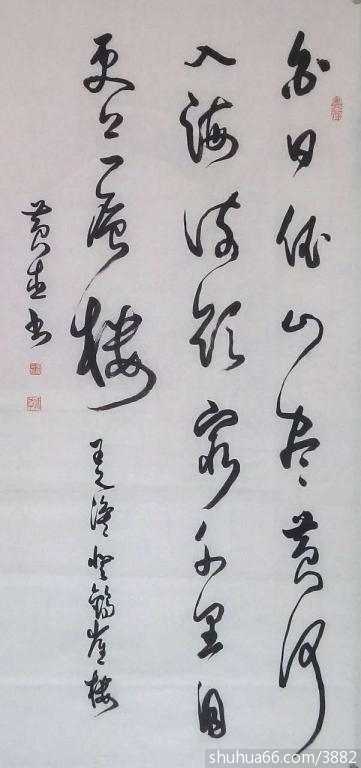 白日依山尽黄河
入海流欲穷千里目
更上一层楼
王之涣登鹳雀楼
黄
书
shuhua66.com/3882